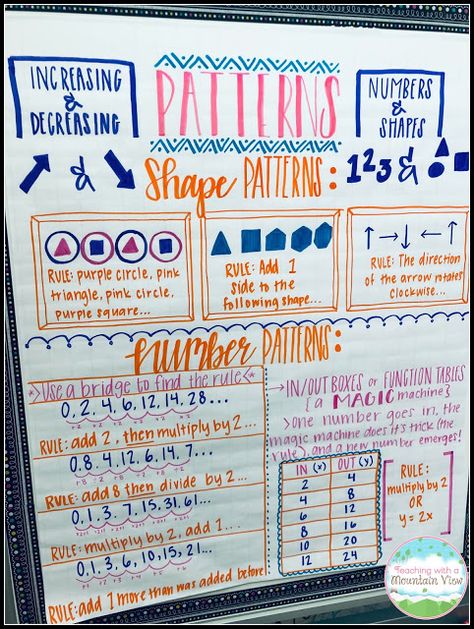 INCREASING
&
DECREASING
&
PATTERNS
NUMBERS
&
SHAPES
Shape PATTERNS:
123 &
RULE: purple circle, pink
triangle, pink circle,
purple square...
RULE: Add 1
side to the
following shape...
↑ → ↓ ← ↑
RULE: The direction
of the arrow rotates
clockwise...
number PATTERNS:
*>Use a bridge to find the rule<*
0, 2, 4, 6, 12, 14, 28...
RULE: add 2, then multiply by 2...
0. 8. 4. 12. 6. 14. 7...
RULE: add 8 then divide by 2...
0, 1, 3. 7, 15, 31, 61...
RULE: multiply by 2, add 1...
0, 1, 3, 6, 10, 15, 21...
+1 +2 +3 +4 +5 +6
RULE: add 1 more than was added before
→IN/OUT BOXES or FUNCTION TABLES
{a MAGIC machine}
>one number goes in, the
magic machine does it's trick (the
rule), and a new number emerges!
IN (x) OUT (y)
2 4
4 8
6 12
8 16
10 20
12 24
RULE:
multiply by 2
OR
y = 2x
Teaching with a
Mountain View